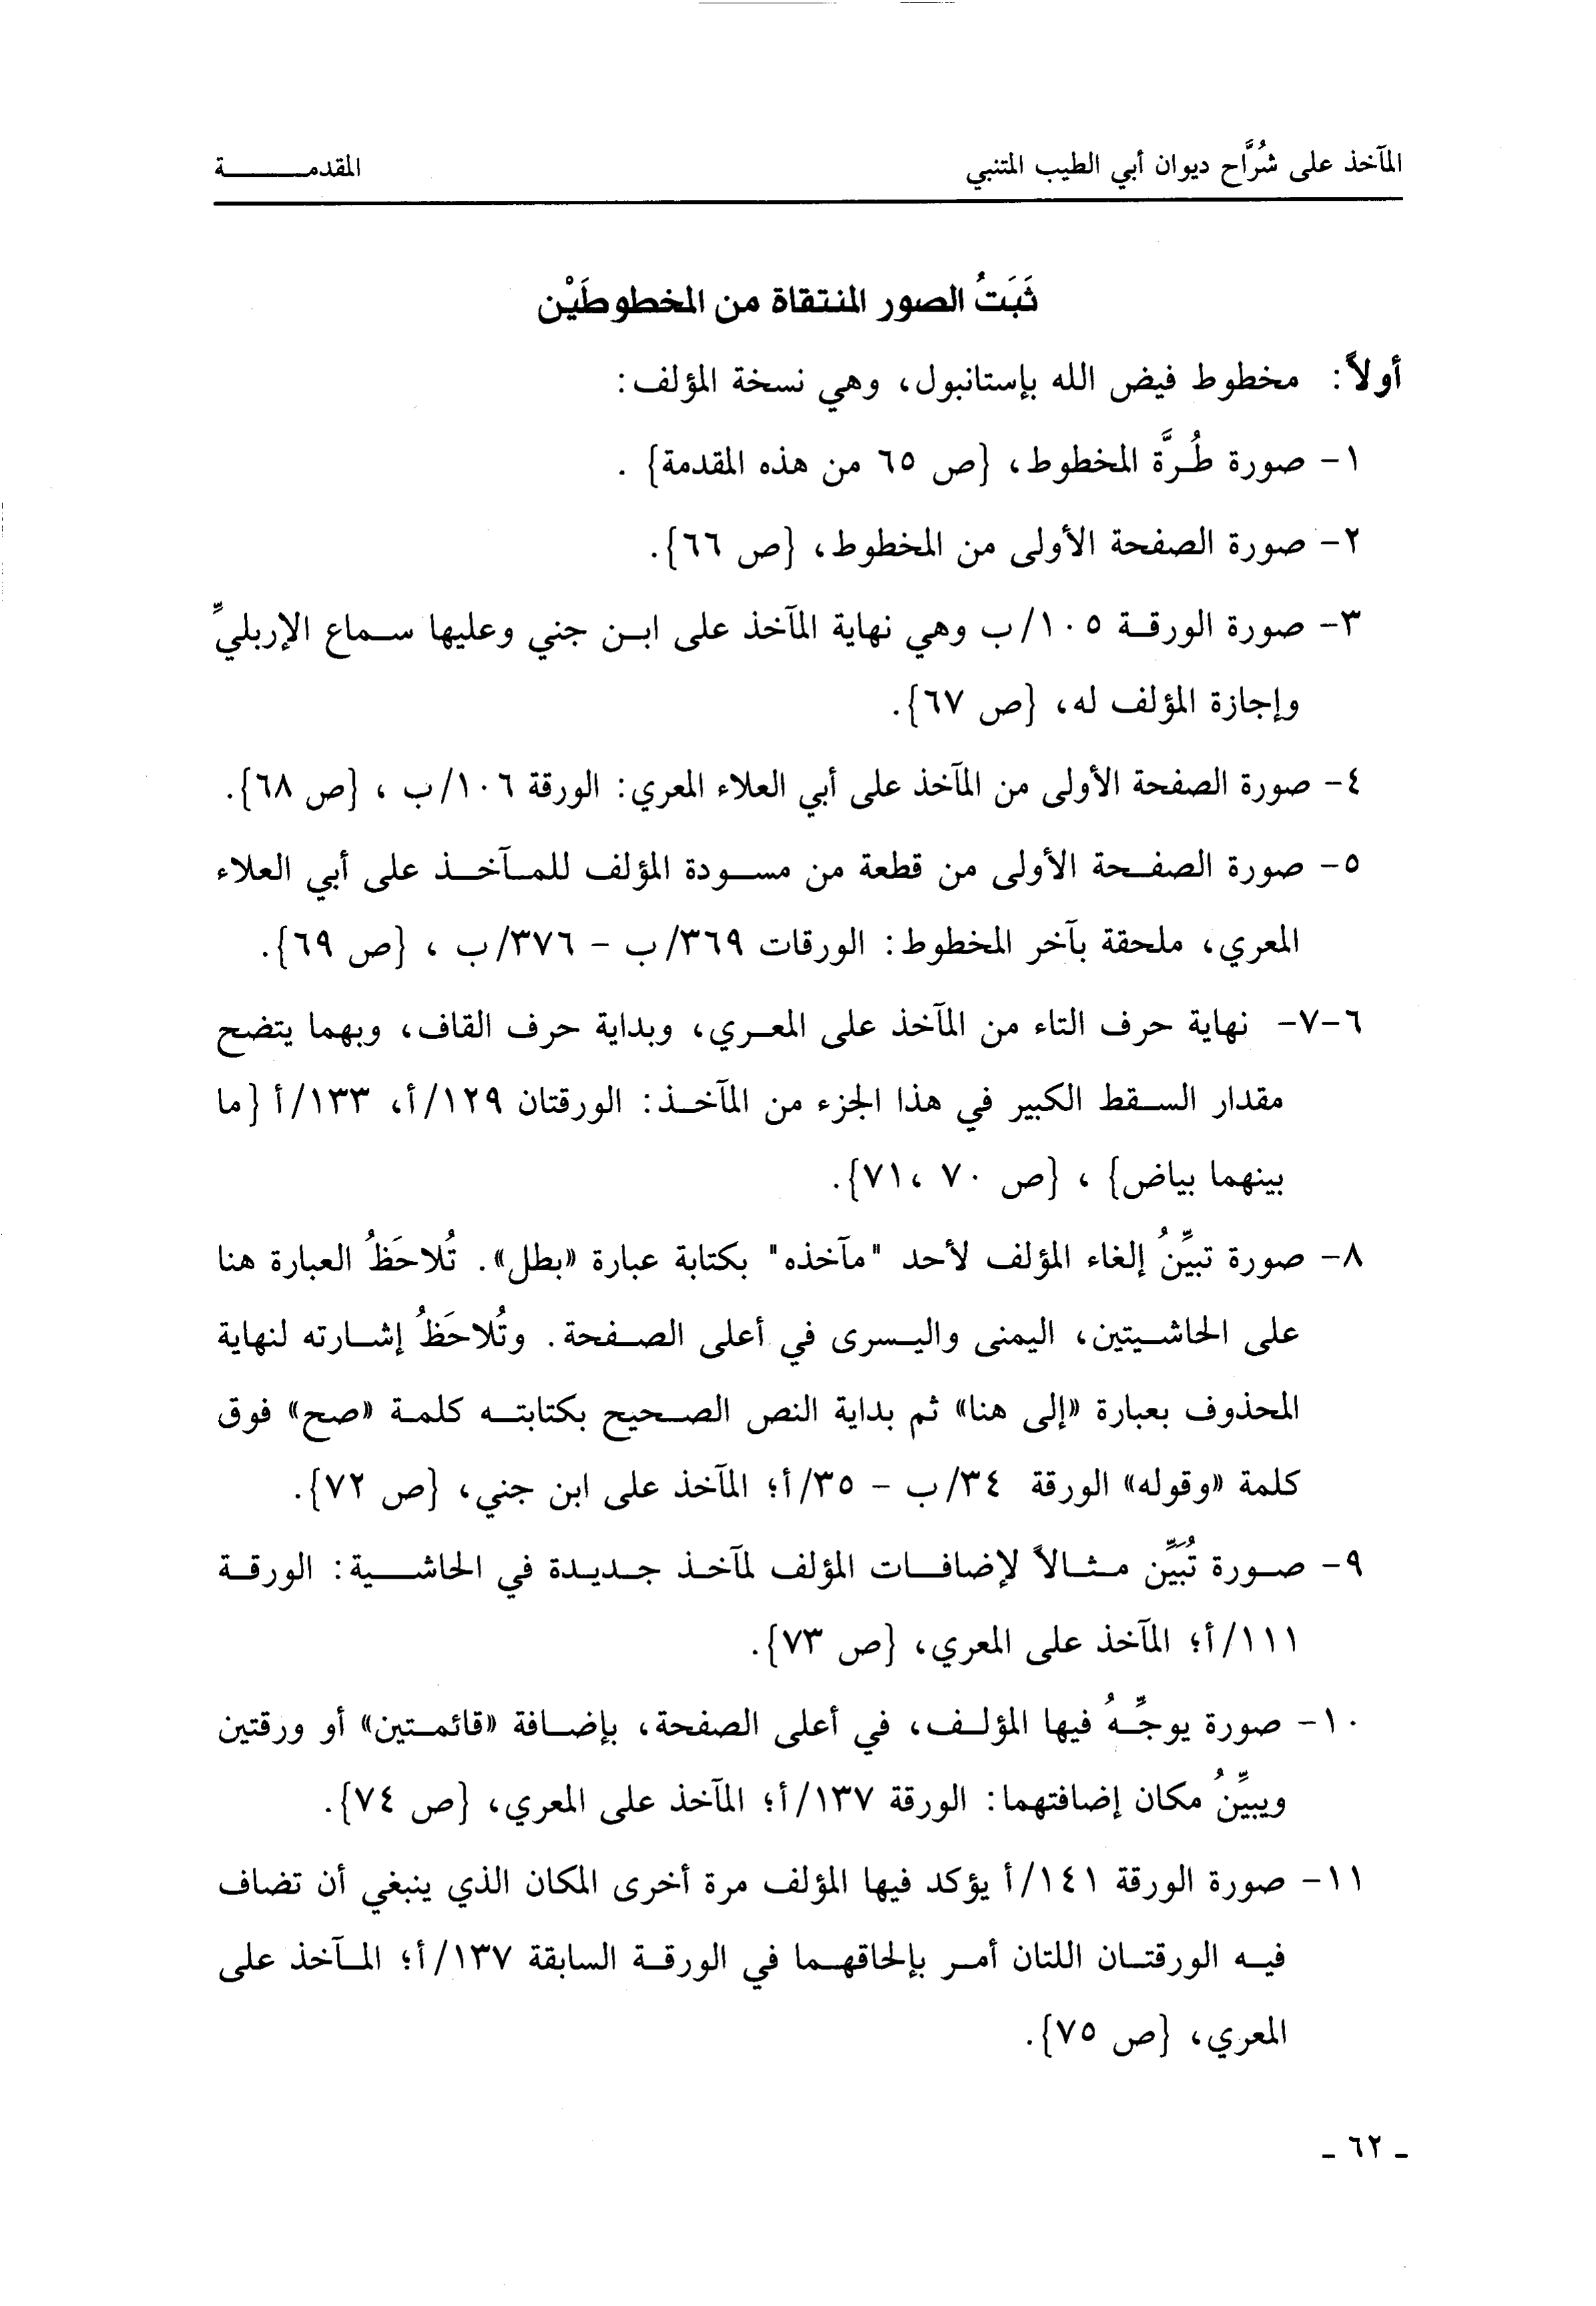 المآخذ على شُرَّاح ديوان أبي الطيب المتنبي المقدمـــــــة
ثَبَتُ الصور المنتقاة من المخطوطَيْن
أولاً: مخطوط فيض الله بإستانبول، وهي نسخة المؤلف:
١- صورة طُـرَّة المخطوط، {ص ٦٥ من هذه المقدمة} .
٢- صورة الصفحة الأولى من المخطوط، {ص ٦٦}.
٣- صورة الورقـة ١٠٥/ب وهي نهاية المآخذ على ابـن جني وعليها سـماع الإربليِّ
وإجازة المؤلف له، {ص ٦٧}.
٤- صورة الصفحة الأولى من المآخذ على أبي العلاء المعري: الورقة ١٠٦/ب ، {ص ٦٨}.
٥- صورة الصفـحة الأولى من قطعة من مسـودة المؤلف للمـآخـذ على أبي العلاء
المعري، ملحقة بآخر المخطوط: الورقات ٣٦٩/ب - ٣٧٦/ب ، {ص ٦٩}.
٦-٧- نهاية حرف التاء من المآخذ على المعـري، وبداية حرف القاف، وبهما يتضح
مقدار السـقط الكبير في هذا الجزء من المآخـذ: الورقتان ١٢٩/أ، ١٣٣/أ {ما
بينهما بياض} ، {ص ٧٠ ،٧١}.
٨- صورة تبيِّنُ إلغاء المؤلف لأحد "مآخذه" بكتابة عبارة «بطل». تُلاحَظُ العبارة هنا
على الحاشـيتين، اليمنى واليـسرى في أعلى الصـفحة. وتُلاحَظُ إشـارته لنهاية
المحذوف بعبارة «إلى هنا» ثم بداية النص الصـحيح بكتابتـه كلمـة «صح» فوق
كلمة «وقوله» الورقة ٣٤/ب - ٣٥/أ؛ المآخذ على ابن جني، {ص ٧٢}.
٩- صـورة تُبَيِّن مـثـالاً لإضافـات المؤلف لمآخـذ جـديـدة في الحاشـــية: الورقـة
١١١/أ؛ المآخذ على المعري، {ص ٧٣}.
١٠- صورة يوجِّـهُ فيها المؤلـف، في أعلى الصفحة، بإضـافة «قائمـتين» أو ورقتين
ويبيِّنُ مكان إضافتهما: الورقة ١٣٧/أ؛ المآخذ على المعري، {ص ٧٤}.
١١- صورة الورقة ١٤١/أ يؤكد فيها المؤلف مرة أخرى المكان الذي ينبغي أن تضاف
فيـه الورقتـان اللتان أمـر بإلحاقهـما في الورقـة السابقة ١٣٧/أ؛ المـآخذ على
المعري، {ص ٧٥}.
- ٦٢ -